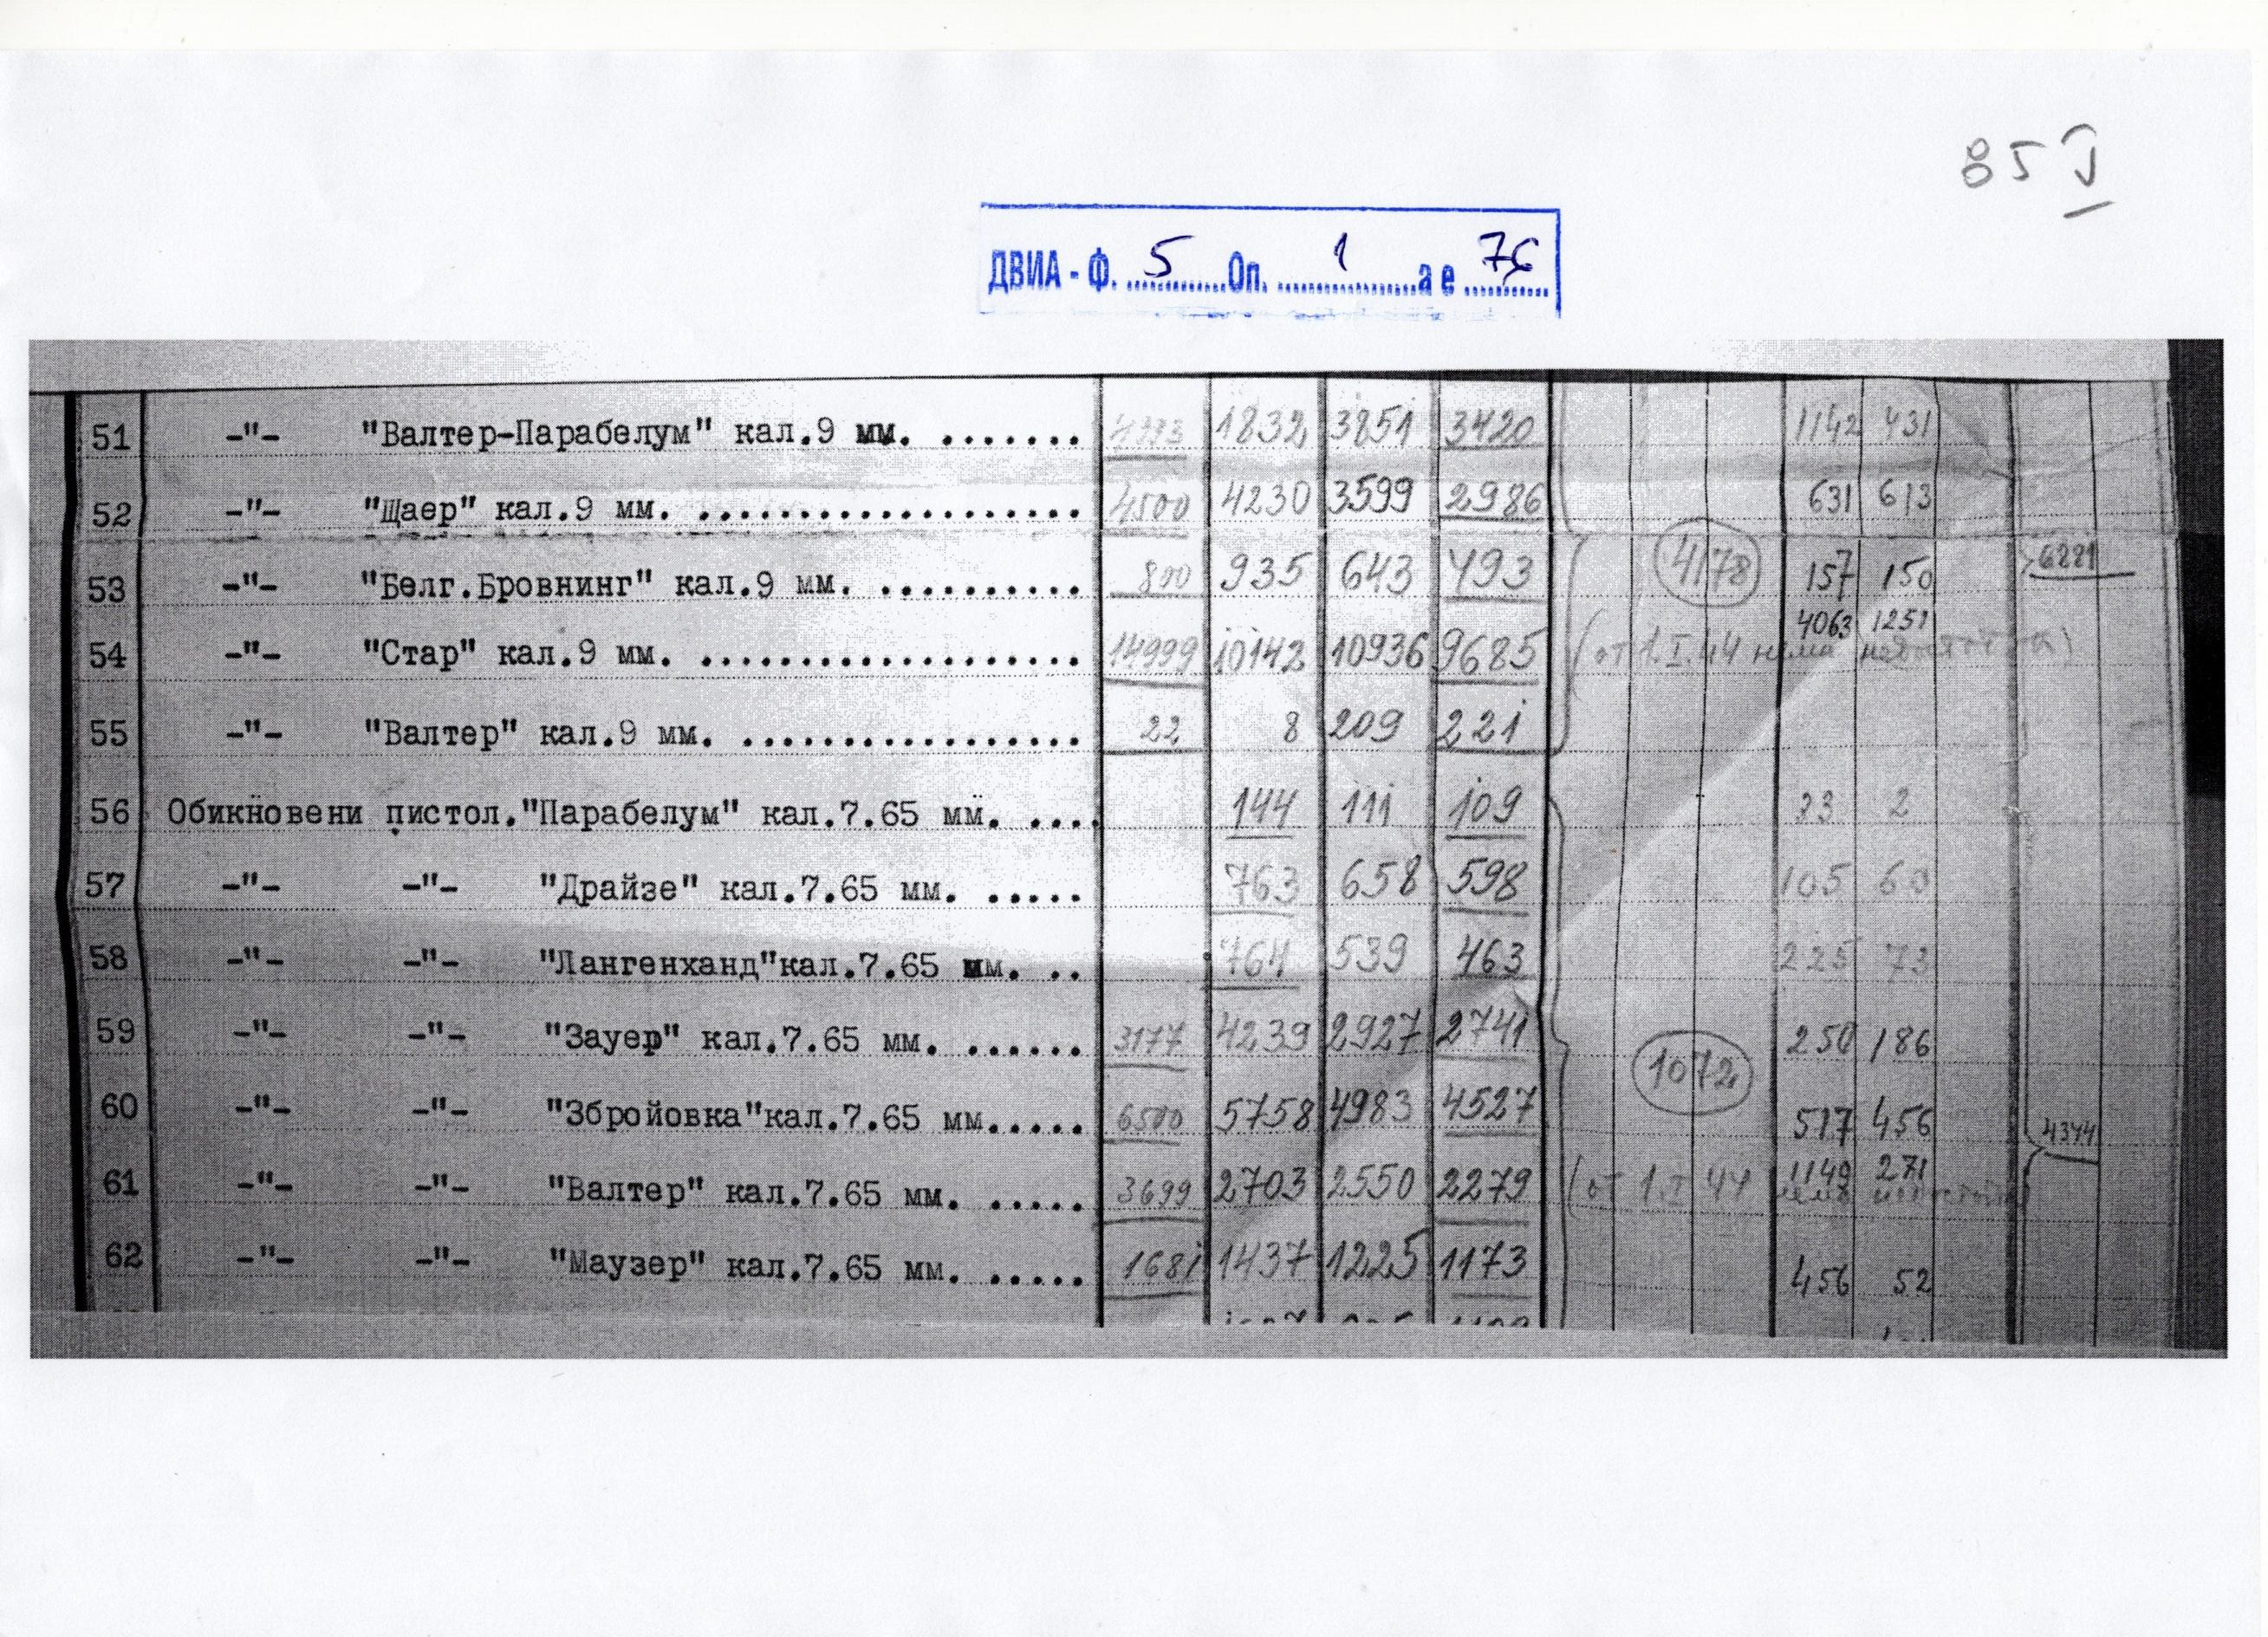 85
ДВИА - Ф. 5 Оп. 1 а е 76
51 -"- "Валтер-Парабелум" кал.9 мм. ....... 1832 3851 3420 1142 431
52 -"- "Щаер" кал.9 мм. ................... 4500 4230 3599 2986 631 613
53 -"- "Белг.Бровнинг" кал.9 мм. .......... 800 935 643 493 4178 157 150 6221
54 -"- "Стар" кал.9 мм. ................... 14999 10142 10936 9685 (от 1.I.44 няма 4063 1251
55 -"- "Валтер" кал.9 мм. ................. 22 8 209 221
56 Обикновени пистол."Парабелум" кал.7.65 мм. .... 144 111 109 33 2
57 -"- -"- "Драйзе" кал.7.65 мм. ..... 763 658 598 105 60
58 -"- -"- "Лангенханд"кал.7.65 мм. .. 764 539 463 225 73
59 -"- -"- "Зауер" кал.7.65 мм. ...... 3177 4239 2927 2741 1072 250 186
60 -"- -"- "Збройовка"кал.7.65 мм..... 6500 5758 4983 4527 517 456 4344
61 -"- -"- "Валтер" кал.7.65 мм. ..... 3699 2703 2550 2279 (от 1.I.44 1149 271
62 -"- -"- "Маузер" кал.7.65 мм. ..... 1681 1437 1225 1173 456 52